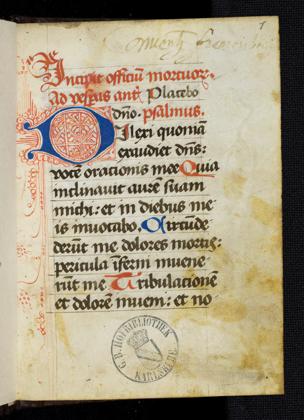 1
Incipit officiū mortuor
Ad vesp̄as antᷓ Placebo
dño. psalmus.
Dilexi quoniā
exaudiet dñs:
vocē oracionis mee Quia
inclinauit aurē suam
michi: et in diebus me
is inuocabo. Circūde
derūt me dolores mortis:
pericula īferni inuene
rūt me Tribulacionē
et dolorē inueni: et no
G. B. HOFBIBLIOTHEK
KARLSRUHE